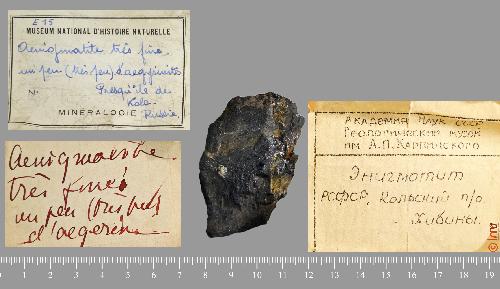 E 15
MUSÉUM NATIONAL D'HISTOIRE NATURELLE
Aenigmatite très fine
un peu (très peu) d'aegyrinite
Presqu'île de
Kola
N°
Russie
MINÉRALOGIE
Aenigmatite
très fine
un peu (très peu)
d'aegerine
АКАДЕМИЯ НАУК СССР
Геологический музей
им. А.П. Карпинского
Энигматит
РСФСР, Кольский п/о
Хибины.
0 1 2 3 4 5 6 7 8 9 10 11 12 13 14 15 16 17 18 19